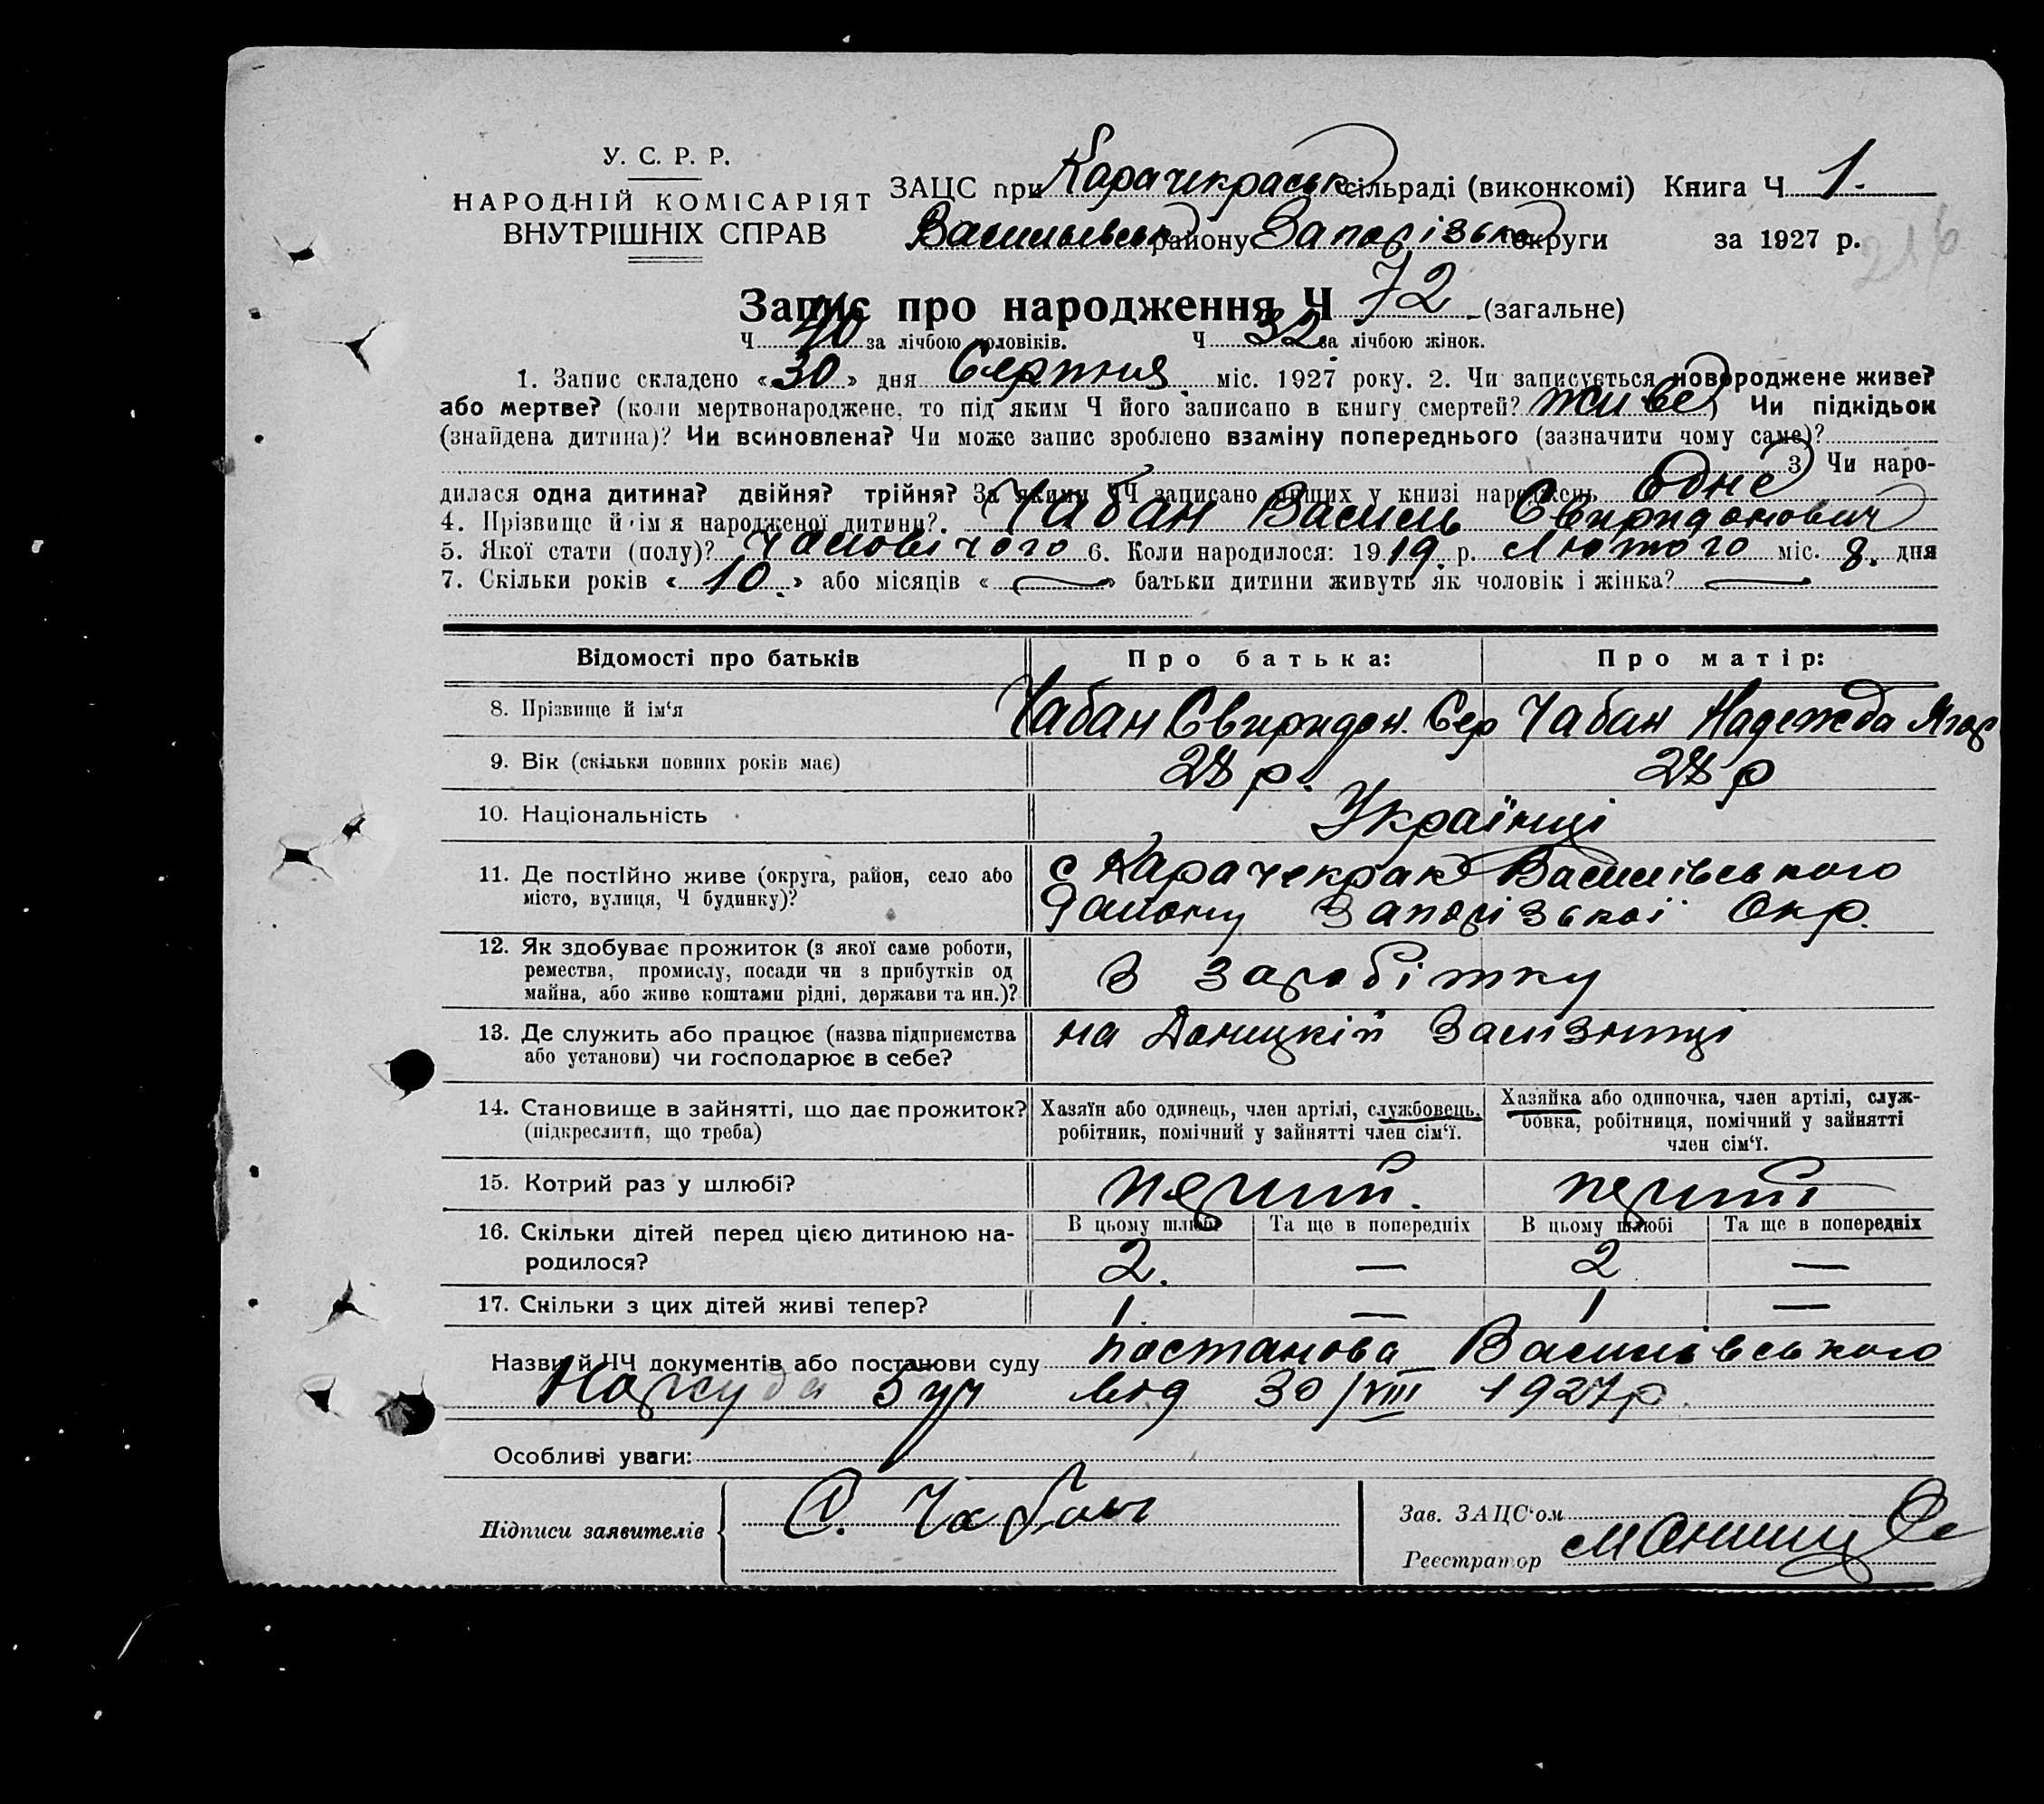 У. С. Р. Р.
НАРОДНІЙ КОМІСАРІЯТ
ВНУТРІШНІХ СПРАВ
ЗАЦС при Карачекраськ сільраді (виконкомі) Книга Ч 1.
Васильевськ району Запорізько округи за 1927 р.
216
Запис про народження Ч 72 (загальне)
Ч 40 за лічбою чоловіків. Ч 32 за лічбою жінок.
1. Запис складено «30» дня Серпня міс. 1927 року. 2. Чи записується новороджене живе?
або мертве? (коли мертвонароджене, то під яким Ч його записано в книгу смертей? живе) Чи підкідьок
(знайдена дитина)? Чи всиновлена? Чи може запис зроблено взаміну попереднього (зазначити чому саме)?
3) Чи наро-
дилася одна дитина? двійня? трійня? За якими ЧЧ записано инших у книзі народжень одне
4. Прізвище й ім'я народженої дитини? Чабан Василь Свиридонович
5. Якої стати (полу)? Чоловічого 6. Коли народилося: 1919 р. Лютого міс. 8. дня
7. Скільки років «10.» або місяців «—» батьки дитини живуть як чоловік і жінка? —
Відомості про батьків Про батька: Про матір:
8. Прізвище й ім‘я Чабан Свиридон. Сер Чабан Надежда Ягор
9. Вік (скільки повних років має) 28 р. 28 р
10. Національність Українці
11. Де постійно живе (округа, район, село або
місто, вулиця, Ч будинку)?
с Карачекрак Василівського
району Запорізької Окр.
12. Як здобуває прожиток (з якої саме роботи,
ремества, промислу, посади чи з прибутків од
майна, або живе коштами рідні, держави та ин.)?
З заробітку
13. Де служить або працює (назва підприємства
або установи) чи господарює в себе?
на Донецкій Залізниці
14. Становище в зайнятті, що дає прожиток?
(підкреслити, що треба)
Хазяїн або одинець, член артілі, службовець,
робітник, помічний у зайнятті член сім‘ї.
Хазяйка або одиночка, член артілі, служ-
бовка, робітниця, помічний у зайнятті
член сім‘ї.
15. Котрий раз у шлюбі? перший. перший
16. Скільки дітей перед цією дитиною на-
родилося?
В цьому шлюбі Та ще в попередніх В цьому шлюбі Та ще в попередніх
2. — 2 —
17. Скільки з цих дітей живі тепер? 1. — 1 —
Назви й ЧЧ документів або постанови суду постанова Василівського
Нарсуда 5 уч від 30/VIII 1927р.
Особливі уваги:
Підписи заявителів С. Чабан
Зав. ЗАЦС‘ом
Реєстратор